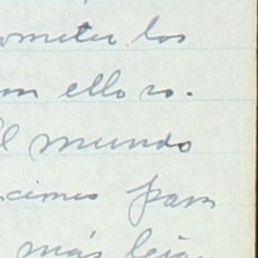 ometer los
on ello ro.
El mundo
cimos para
más lejos